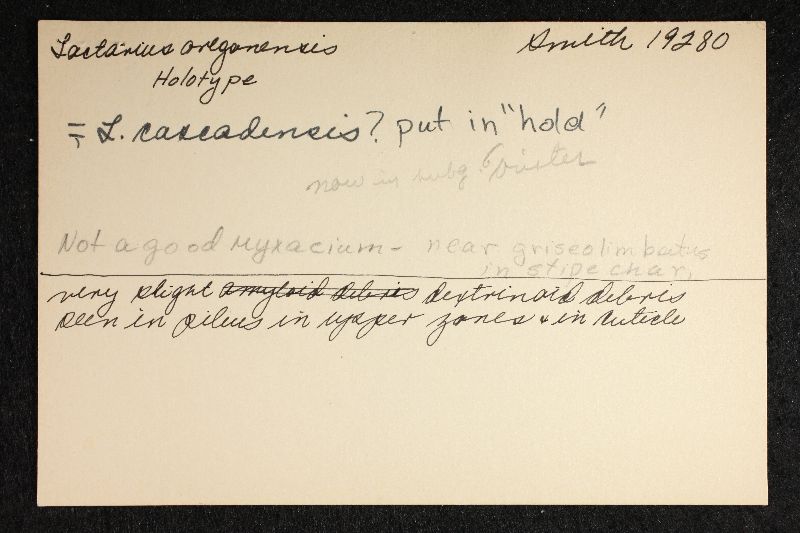 Lactarius oregonensis Smith 19280
Holotype
= L. cascadensis? put in "hold"
now in subg.
Not a good myxacium - near griseolimbatus
in stipe char,
very slight amyloid debris dextrinoid debris
seen in pileus in upper zones & in cuticle